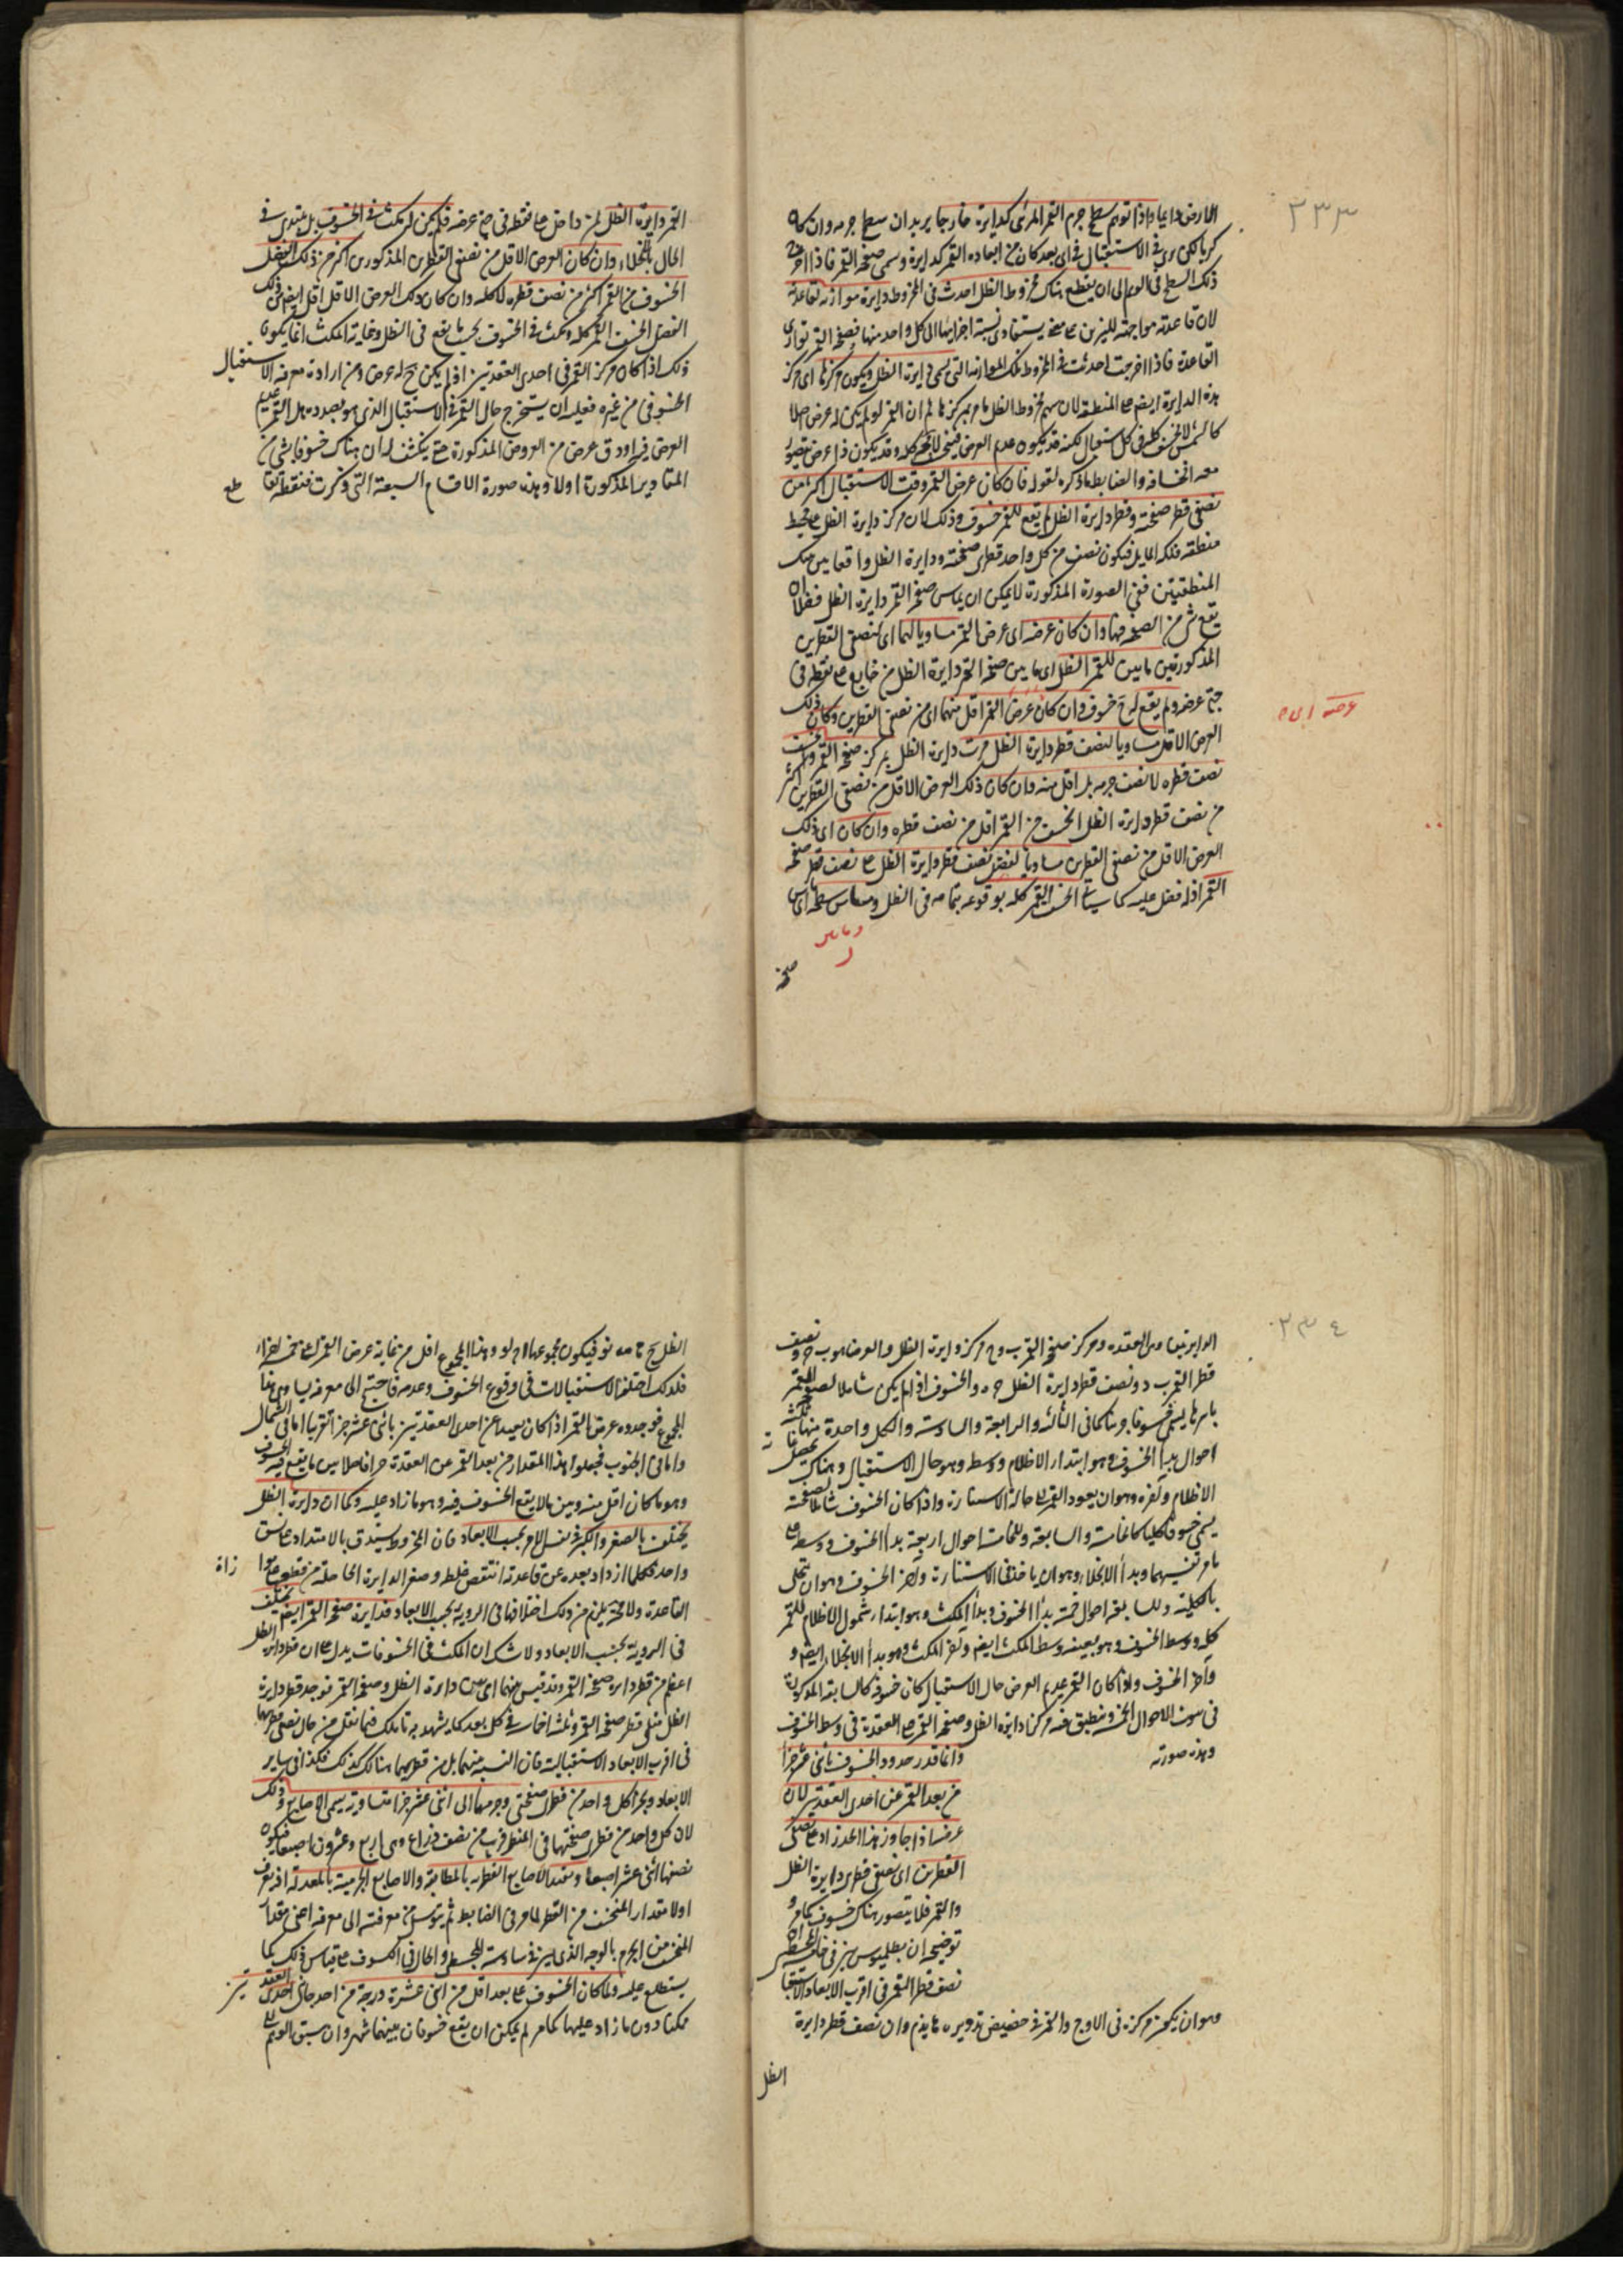 ٢٣٣
الارض دايما واذا توهم سطح جرم القمر المرئى كدايرة خارجا يريد ان سطح جرمه وان كان
كريا لكن يرى فى الاستقبال فى اى بعد كان من ابعاده القمر كدايرة وسمى صفحة القمر فاذا اخرج
ذلك السطح فى الوهم الى ان يقطع هناك مخروط الظل احدث فى المخروط دايرة موازية لقاعدته
لان قاعدته مواجهة للنيرين نسبة اجزايها الى كل واحد منها فصفحة القمر توازى
القاعدة فاذا اخرجت احدثت فى المخروط تلك الموازنة التى تسمى دايرة الظل ويكون مركزها اى مركز
هذه الدايرة ايضا على المنطقة لان سهم مخروط الظل مار بمركزها ثم ان القمر لو لم يكن له عرض اصلا
كالشمس لانخسف كله فى كل استقبال لكنه قد يكون عديم العرض فينخسف كله وقد يكون ذا عرض يتصور
معه انخسافه والضابط ما ذكره بقوله فان كان عرض القمر وقت الاستقبال اكثر من
نصفى قطر صفحته وقطر دايرة الظل لم يقع للقمر خسوف وذلك لان مركز دايرة الظل على محيط
منطقة فلكه المايل فيكون نصف من كل واحد قطرى صفحته ودايرة الظل واقعا بين تينك
المنطقتين ففى الصورة المذكورة لا يمكن ان يماس صفحة القمر دايرة الظل فضلا ان
تقع شئ من الصفحة فيها وان كان عرضه اى عرض القمر مساويا لهما اى لنصفى القطرين
المذكورتين ماس القمر الظل اى ماس صفحة القمر دايرة الظل من خارج على نقطة فى
جهة عرضه ولم يقع له خسوف وان كان عرض القمر اقل منهما اى من نصفى القطرين وكان ذلك
العرض الاقل مساويا لنصف قطر دايرة الظل مرت دايرة الظل بمركز صفحة القمر وانخسف
نصف قطره لا نصف جرمه بل اقل منه وان كان ذلك العرض الاقل من نصفى القطرين اكثر
من نصف قطر دايرة الظل انخسف من القمر اقل من نصف قطره وان كان اى ذلك
العرض الاقل من نصفى القطرين مساويا لفضل نصف قطر دايرة الظل على نصف قطر صفحة
القمر اذ له فضل عليه كما سياتى انخسف القمر كله بوقوعه بتمامه فى الظل وماس سطحه اى ماس
صفحة
القمر دايرة الظل من داخل على نقطة فى جهة عرضه فلم يكن له مكث فى الخسوف بل يبتدى فى
الحال بالانجلاء وان كان العرض الاقل من نصفى القطرين المذكورين اكثر من ذلك الفضل
انخسف من القمر اكثر من نصف قطره لا كله وان كان ذلك العرض الاقل اقل ايضا من ذلك
الفضل انخسف القمر كله ومكث فى الخسوف بحسب ما يقع فى الظل وغاية المكث انما يكون
ذلك اذا كان مركز القمر فى احدى العقدتين اذ لم يكن ح له عرض ومن اراد معرفة الاستقبال
الخسوفى من غيره فعليه ان يستخرج حال القمر فى الاستقبال الذى هو بصدده هل القمر عديم
العرض فيه او ذو عرض من العروض المذكورة حتى ينكشف له ان هناك خسوفا بشئ من
المقادير المذكورة اولا وهذه صورة الاقسام السبعة التى ذكرت فنقطة تقا
٢٣٤
قطر القمر ب د ونصف قطر دايرة الظل ج ه والخسوف اذا لم يكن شاملا لصفحة القمر
باسرها يسمى خسوفا جزئيا كما فى الثالثة والرابعة والسادسة ولكل واحدة منها ثلثة
احوال بدأ الخسوف وهو ابتداء الاظلام ووسط وهو حال الاستقبال وهناك
الاظلام وآخره وهو ان يعود القمر الى حالة الاستنارة واذا كان الخسوف شاملا لصفحته
يسمى خسوفا كليا كالخامسة والسابعة وللخامسة احوال اربعة بدأ الخسوف ووسطه على
ما مر تفسيرهما وبدأ الانجلاء وهو ان ياخذ فى الاستنارة وآخر الخسوف وهو ان ينجلى
بالكلية وللسابعة احوال خمسة بدأ الخسوف وبدأ المكث وهو ابتداء شمول الاظلام للقمر
كله ووسط الخسوف وهو بعينه وسط المكث ايضا وآخر المكث وهو بدأ الانجلاء ايضا و
وآخر الخسوف واذا كان القمر عديم العرض حال الاستقبال كان خسوفه كالسابعة المذكورة
فى سوت الاحوال الخمسة وينطبق فيه مركزا دايرة الظل وصفحة القمر على العقدة فى وسط الخسوف
وهذه صورته
وانما قدر حدود الخسوف باثنى عشر جزءا
من بعد القمر عن احدى العقدتين لان
عرضه اذا جاوز هذا الحد زاد على نصفى
القطرين اى نصفى قطرى دايرة الظل
والقمر فلا يتصور هناك خسوف كما مر و
توضيحه ان بطلميوس بين فى خامسة المجسطى ان
نصف قطر القمر فى اقرب الابعاد الاستقبا
وهو ان يكون مركزه فى الاوج والقمر فى حضيض تدويره وان نصف قطر دايرة
الظل
فلذلك اختلف الاستقبالات فى وقوع الخسوف وعدمه فاحتيج الى معرفة ما يساوى هذا
المجموع فوجدوه عرض القمر اذا كان بعيدا عن احدى العقدتين باثنى عشر جزءا تقريبا اما فى الشمال
واما فى الجنوب فجعلوا هذا المقدار من بعد القمر عن العقدة حدا فاصلا بين ما يقع فيه الخسوف
وهو ما كان اقل منه وبين ما لا يقع الخسوف فيه وهو ما زاد عليه وكما ان دايرة الظل
يختلف بالصغر والكبر فى نفس الامر بحسب الابعاد فان المخروط يستدق بالامتداد على نسق
واحد فكلما ازداد بعده عن قاعدته انتقص غلظه وصغر الدايرة الحاصلة من قطعه
القاعدة ولا محة يلزم من ذلك اختلافها فى الروية بحسب الابعاد فدايرة صفحة القمر ايضا يختلف
فى الروية بحسب الابعاد ولا شك ان المكث فى الخسوفات يدل على ان قطر دايرة الظل
اعظم من قطر دايرة صفحة القمر وقد قيس بينهما اى بين دايرة الظل وصفحة القمر فوجد قطر دايرة
الظل مثلى قطر صفحة القمر وثلثة اخماسه فى كل بعد
فى اقرب الابعاد الاستقبالية فان النسبة بينهما بل بين قطريهما هنالك كذلك فكذا فى ساير
الابعاد ويجزأ كل واحد من قطر صفحتى وجرمهما الى اثنى عشر جزءا متساوية يسمى الاصابع وذلك
لان كل واحد من قطرى صفحتيهما فى المنظر قريب من نصف ذراع وهى اربع وعشرون اصبعا فيكون
نصفها اثنى عشر اصبعا ويقيد الاصابع القطرية بالمطلقة والاصابع الجرمية بالمعدلة اذ يعرف
اولا مقدار المنخسف من القطر لما مر فى الضابط ثم يتوسل من معرفته الى معرفة اعنى مقدار
المنخسف من الجرم بالوجه الذى بين فى سادسة المجسطى والحال فى الكسوف على قياس ذلك كما
ستطلع عليه ولما كان الخسوف على بعد اقل من اثنى عشرة درجة من احد جانبى احدى العقد
ممكنا دون ما زاد عليها كما مر لم يمكن ان يقع خسوفان بينهما شهر وان سبق الوهم الى